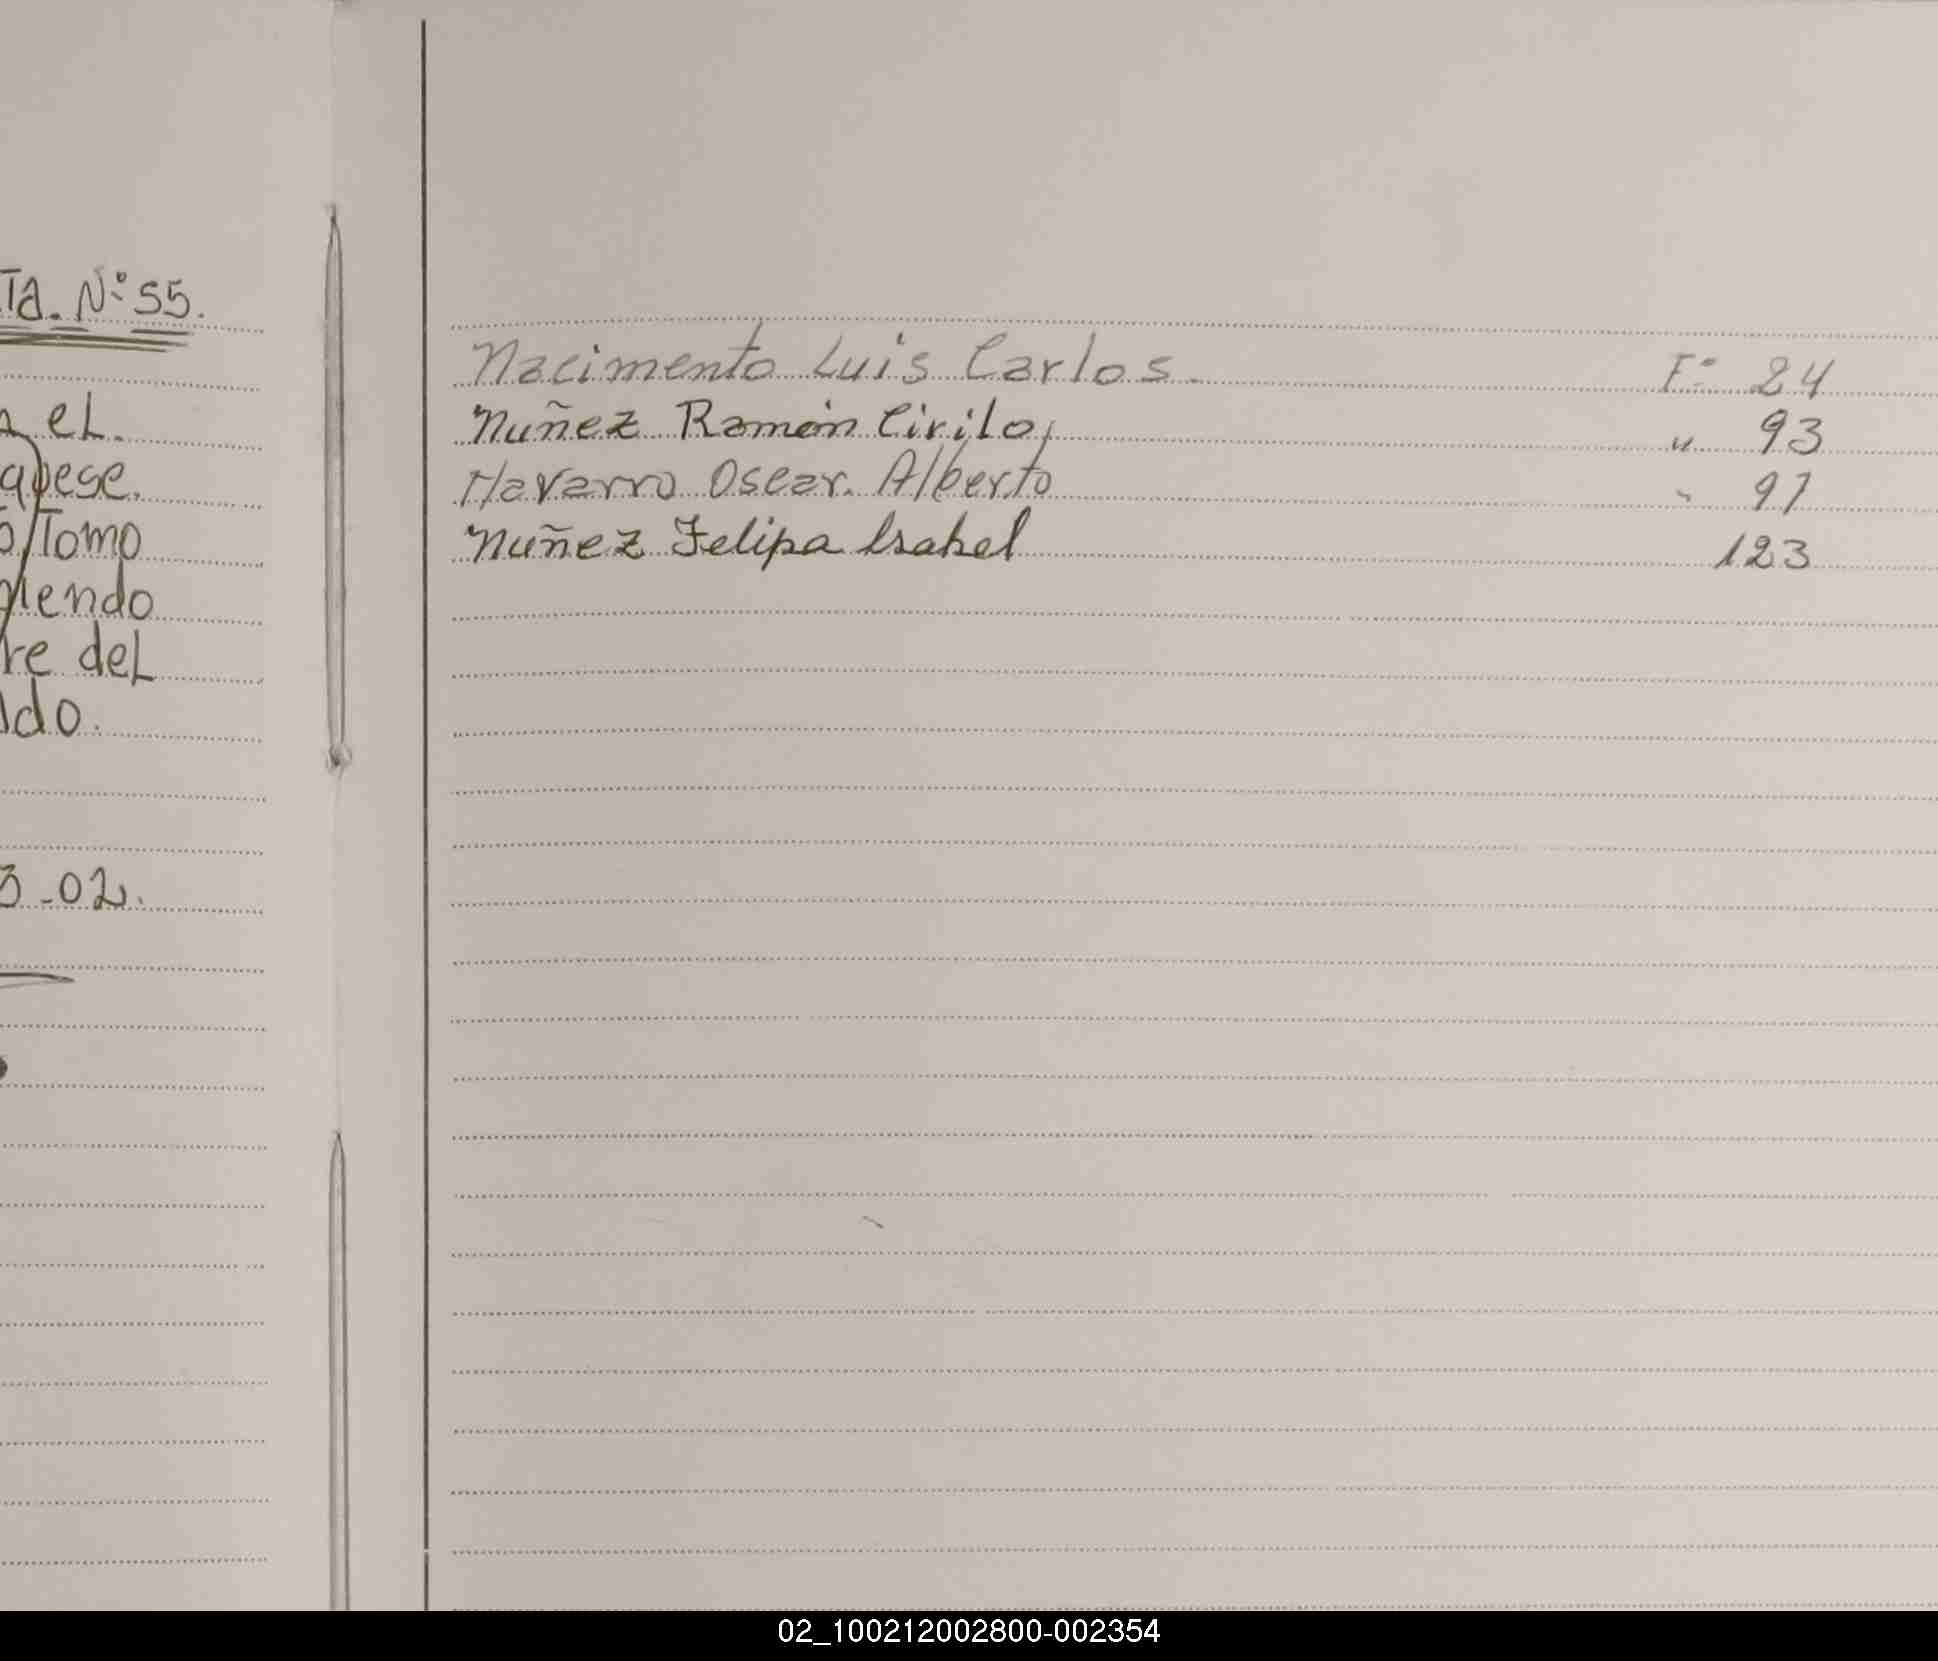 Ta. Nº 55.
n el.
quese.
o/Tomo
niendo
re del
ldo.
3-02.
Nacimento Luis Carlos. Fº 24
Nuñez Ramón Cirilo, " 93
Navarro Oscar. Alberto " 97
Nuñez Felipa Isabel 123
02_100212002800-002354